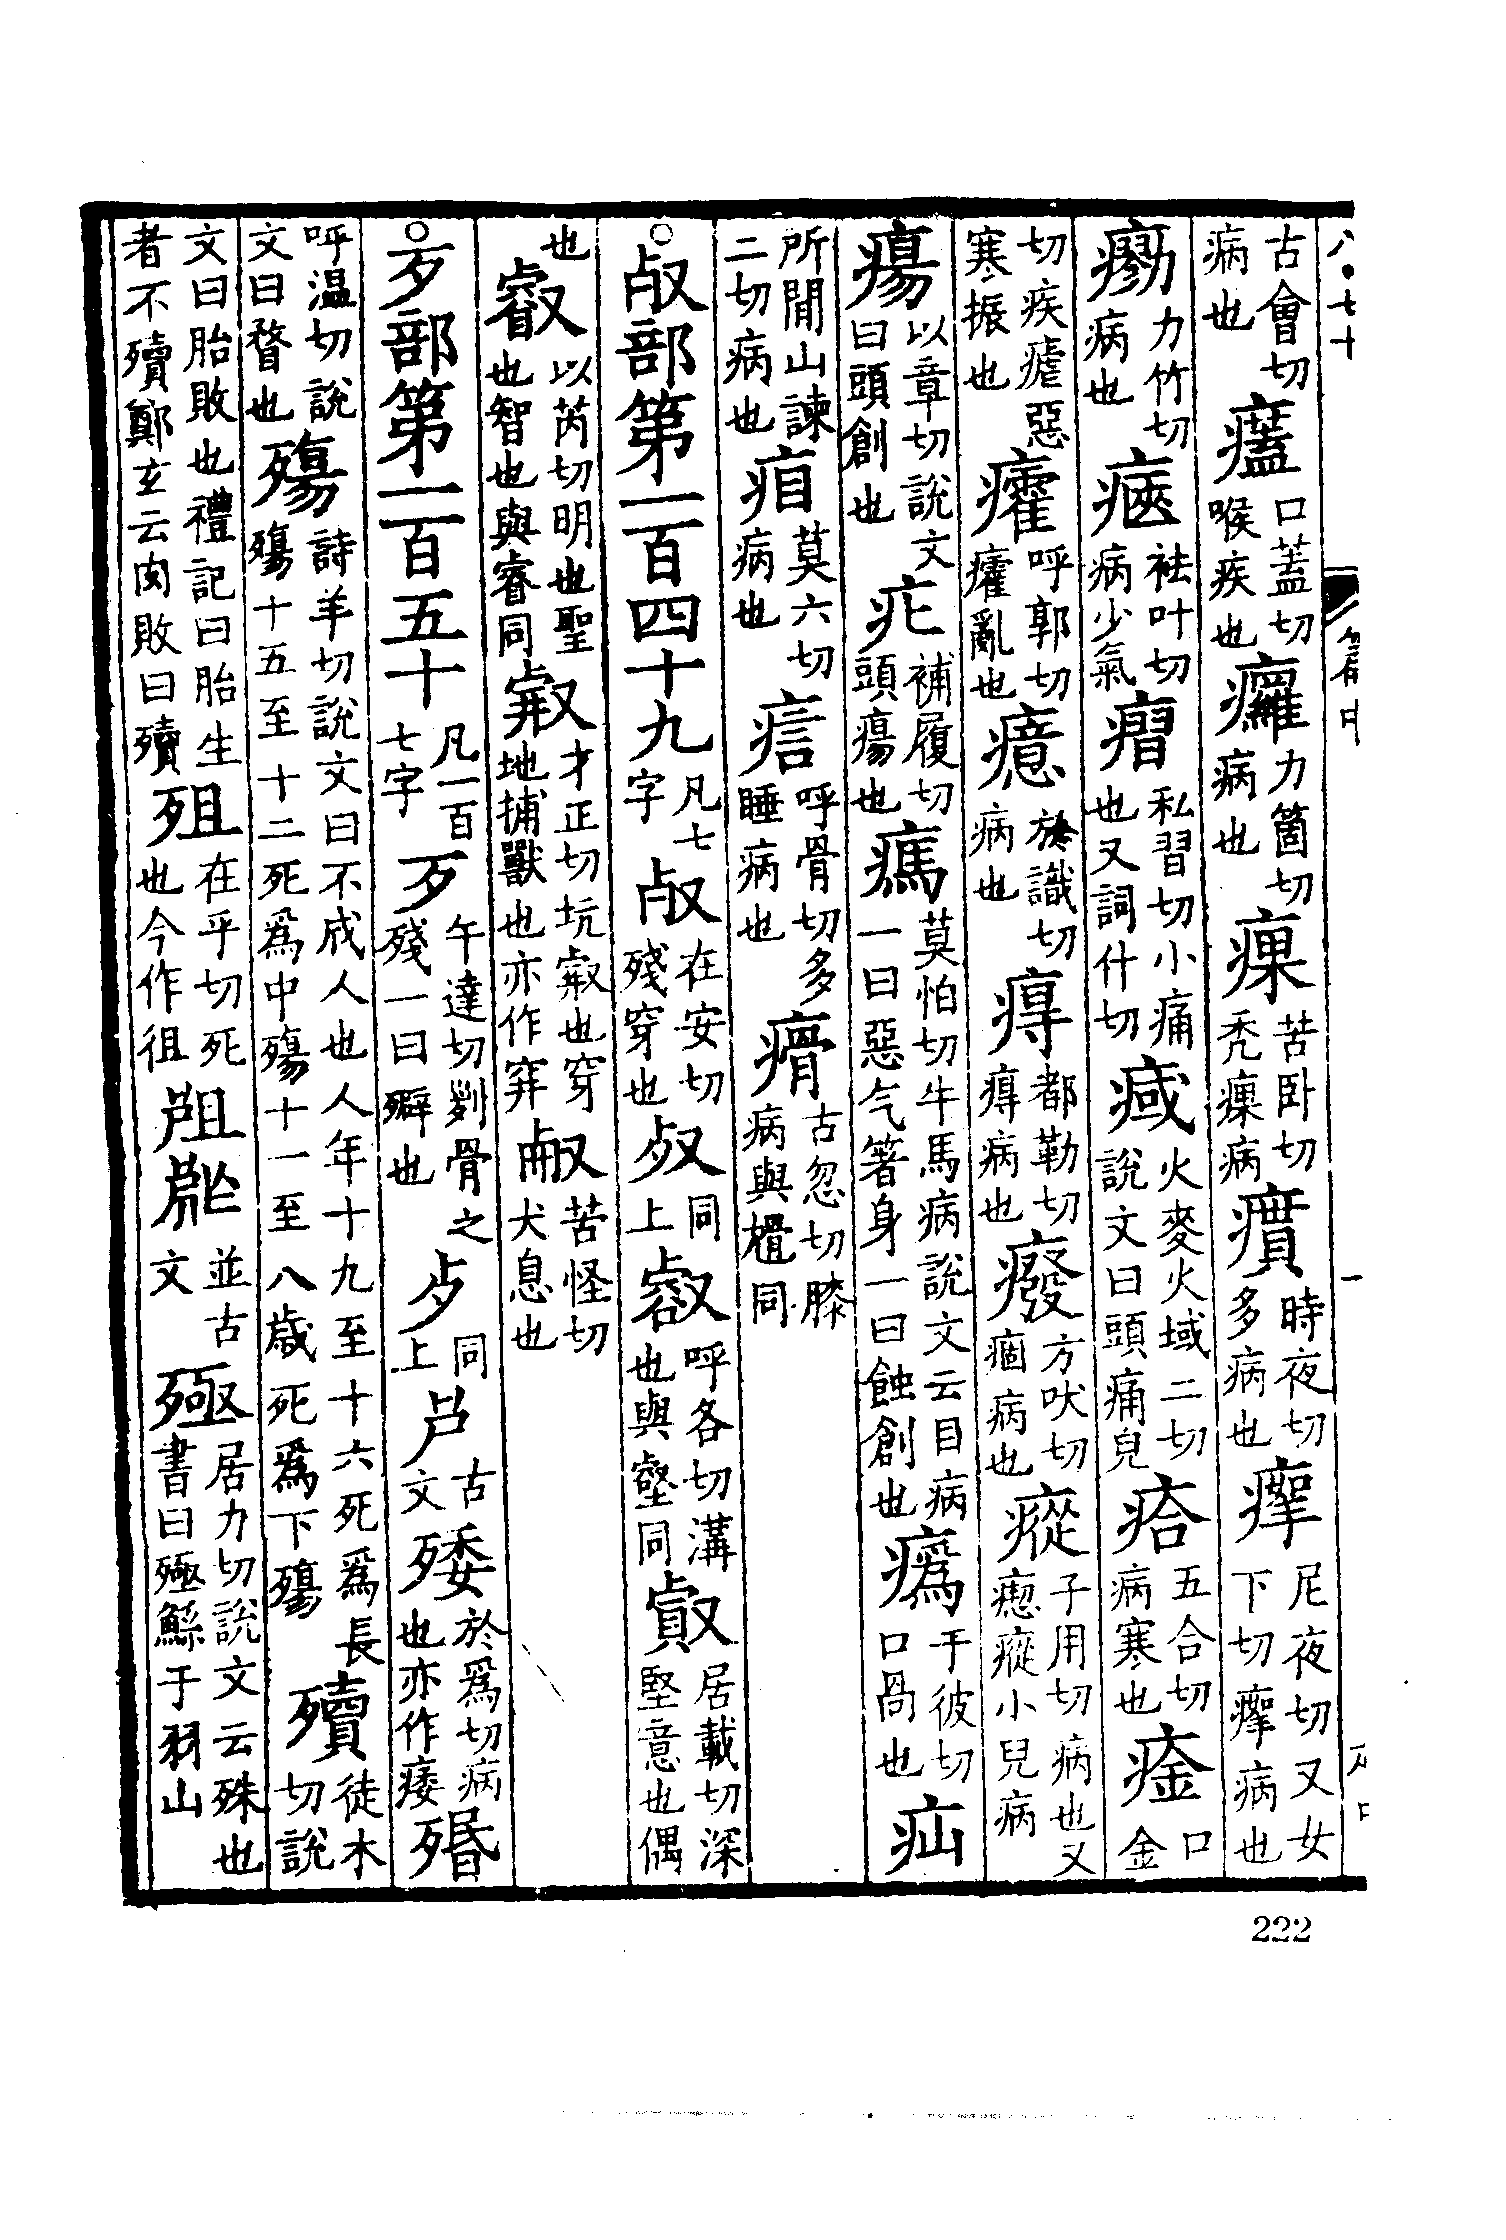 古會切病也 𤸱 口蓋切喉疾也 癱 力箇切病也 㾧 苦卧切禿㾧病 㿉 時夜切多病也 㿭 尼夜切又女下切㿭病也
㿋 力竹切病也 㾜 祛叶切病少氣 㿇 私習切小痛也又詞什切 㽼 火麥火域二切說文曰頭痛皃 㾑 五合切病寒也 㾣 口金
切疾瘧惡寒振也 癨 呼郭切癨亂也 㿅 於識切病也 㝵 都勒切㝵病也 癈 方吠切痼病也 瘲 子用切病也又瘛瘲小兒病
瘍 以章切說文曰頭創也 疕 補履切頭瘍也 㾺 莫怕切牛馬病說文云目病一曰惡气箸身一曰蝕創也 㾻 于彼切口咼也 疝
所閒山諫二切病也 㽾 莫六切病也 㾂 呼骨切多睡病也 㾶 古忽切膝病與䯇同
○𣦼部第一百四十九 凡七字 𣦼 在安切殘穿也 㕡 同上 叡 呼各切溝也與壑同 㕢 居載切深堅意也偶
也 叡 以芮切明也聖也智也與睿同 㕙 才正切坑㕙也穿地捕獸也亦作穽 㕟 苦怪切犬息也
○歹部第一百五十 凡一百七字 歹 午達切剡骨之殘一曰癖也 歺 同上 𣦵 古文 殗 於為切病也亦作痿 殙
呼温切說文曰瞀也 殤 詩羊切說文曰不成人也人年十九至十六死爲長殤十五至十二死爲中殤十一至八歲死爲下殤 殰 徒木切說
文曰胎敗也禮記曰胎生者不殰鄭玄云内敗曰殰 殂 在乎切死也今作徂 𣨓 𣦸 並古文 殛 居力切說文云殊也書曰殛鯀于羽山
222